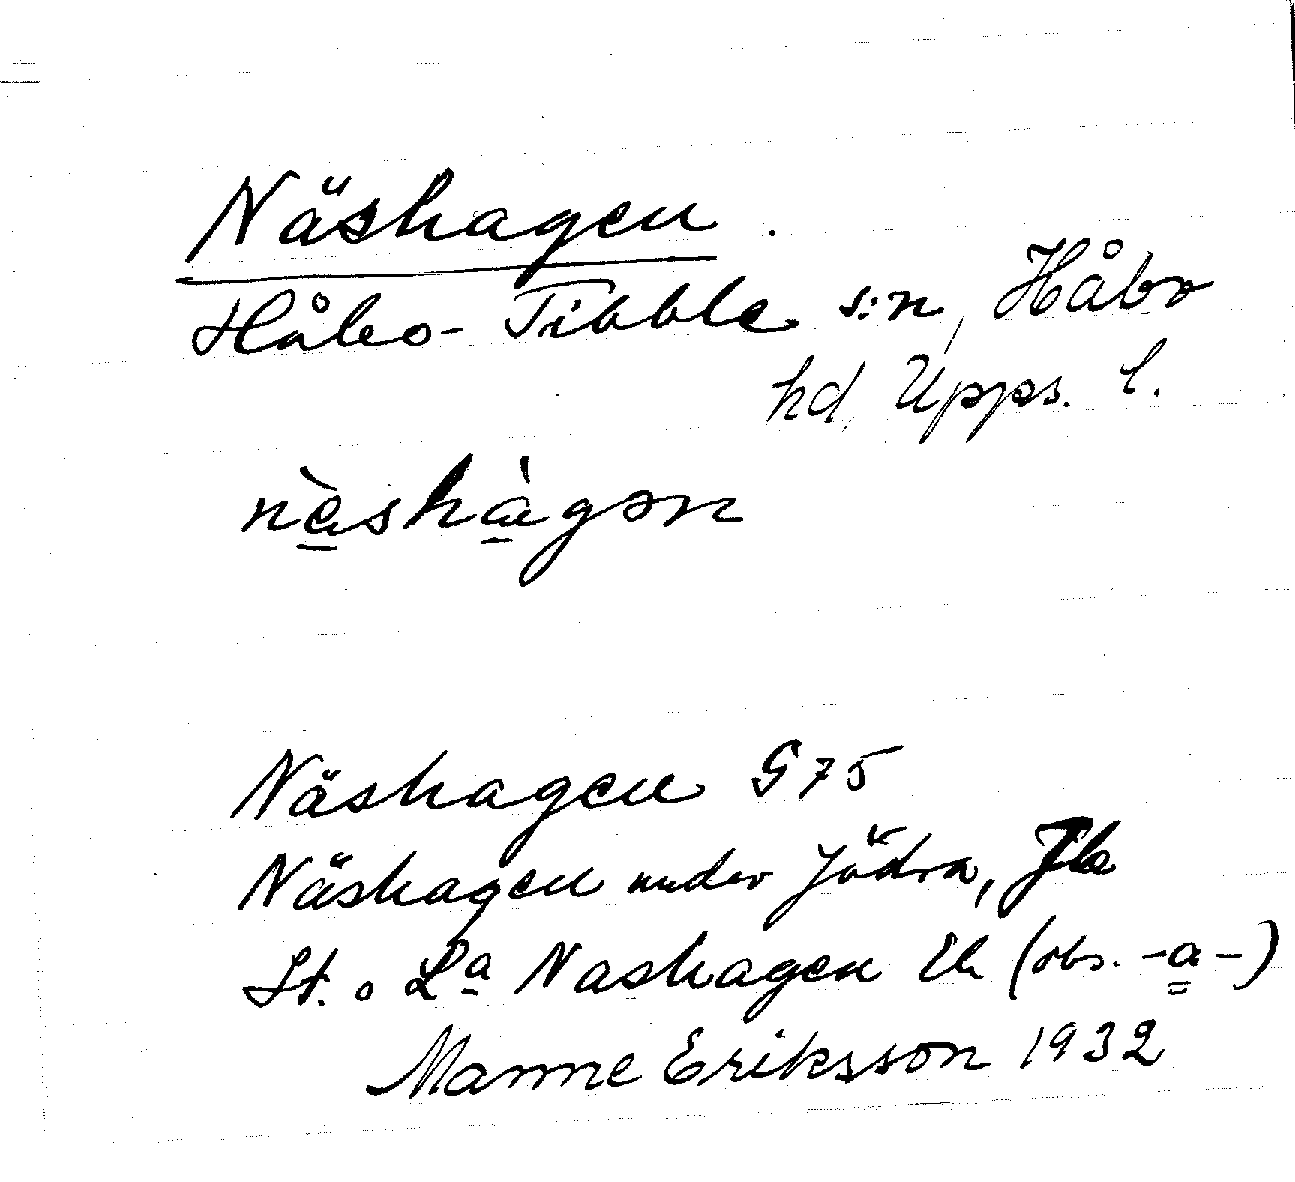 Näshagen.
Håbo-Tibble s:n, Håbo
hd, Upps. l.
nä̀shàgən
Näshagen G 75
Näshagen under Jädra, Jb
St. o La Nashagen Ek (obs. -a-)
Manne Eriksson 1932